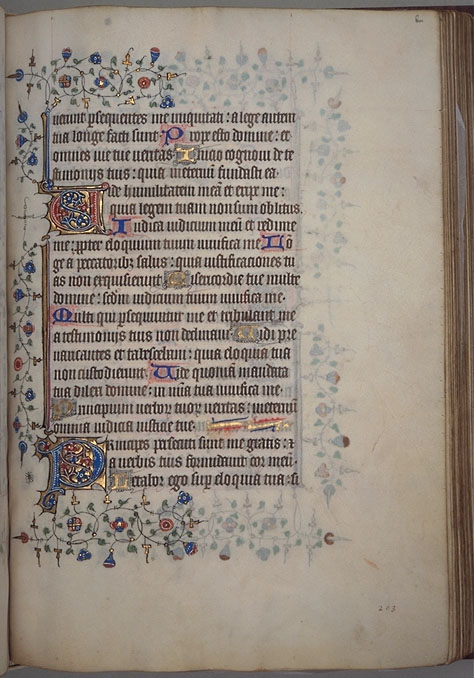 uerunt ꝑsequentes me iniquitati: a lege autem
tua longe facti sunt. Prope esto domine: et
omnes uie tue ueritas. Inicio cognoui de te
stimonijs tuis: quia ineternum fundasti ea.
Uide humilitatem meā et eripe me:
quia legem tuam non sum oblitus.
Iudica iudicium meū et redime
me: ꝓpter eloquium tuum uiuifica me. Lō
ge a peccatoribꝫ salus: quia iustificationes tu
as non exquisierunt. Misericordie tue multe
domine: scdm iudicium tuum uiuifica me.
Multi qui ꝑsequuntur me et tribulant me
a testimonijs tuis non declinaui. Uidi pre
uaricantes et tabescebam: quia eloquia tua
non custodierunt. Uide quoniā mandata
tua dilexi domine: in mīa tua uiuifica me.
Principium uerboꝝ tuoꝝ ueritas: ineternū
omnia iudicia iusticie tue.
Principes persecuti sunt me gratis: ⁊
a uerbis tuis formidauit cor meū.
Letabor ego suꝑ eloquia tua: si
203